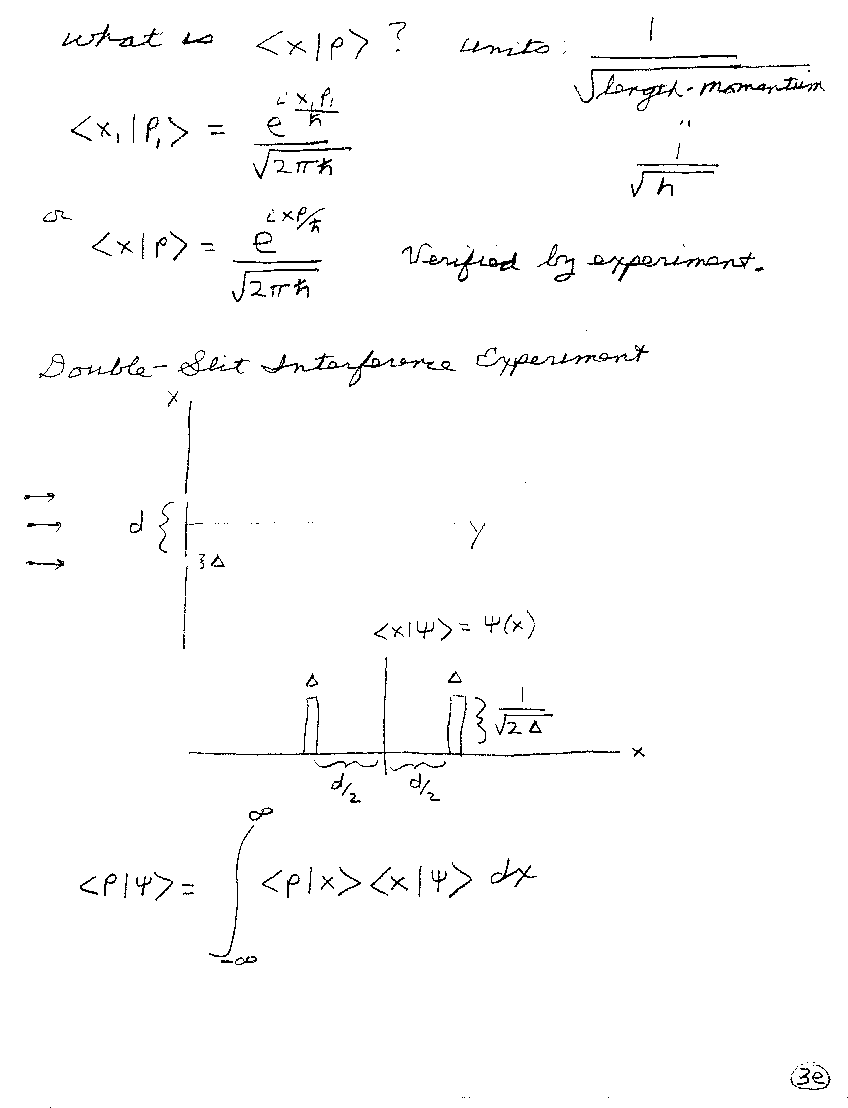 What is <x|p> ? units: 1/√(length·momentum)
<x₁|p₁> = e^(i x₁p₁/ħ)/√(2πħ) " 1/√h
or <x|p> = e^(ixp/ħ)/√(2πħ) Verified by experiment.
Double-Slit Interference Experiment
x
d { y
} Δ
<x|ψ> = ψ(x)
Δ Δ } 1/√(2Δ)
x
d/2 d/2
<p|ψ> = ∫_{-∞}^{∞} <p|x><x|ψ> dx
3e